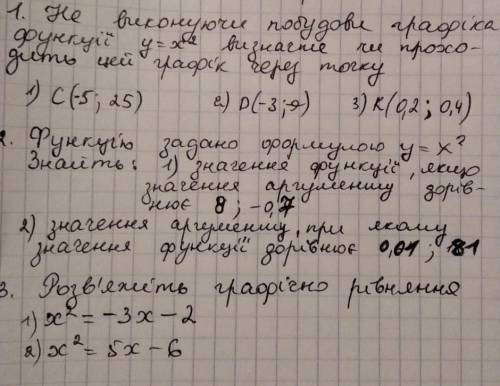 1. Не виконуючи побудови графіка
функції y=x² визначте чи прохо-
дить цей графік через точку
1) C(-5; 25) 2) D(-3; -9) 3) K(0,2; 0,4)
2. Функцію задано формулою y=x²
Знайть: 1) значення функції, якщо
значення аргументу дорів-
нює 8; -0,7
2) значення аргументу, при якому
значення функції дорівнює 0,01; 81
3. Розв'яжіть графічно рівняння
1) x² = -3x - 2
2) x² = 5x - 6